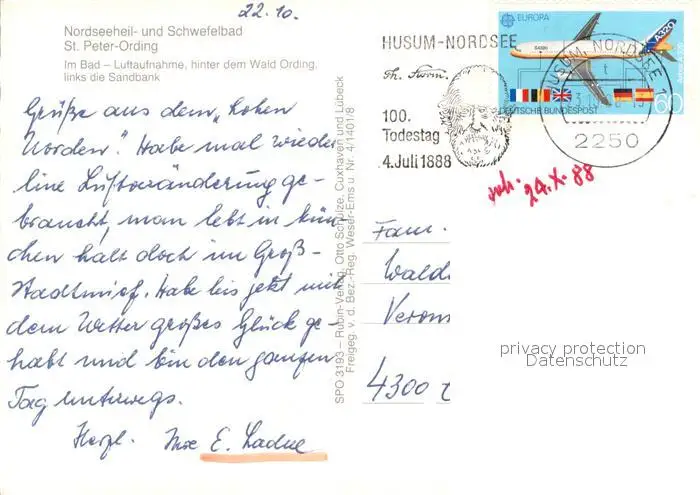 22.10.
Nordseeheil- und Schwefelbad
St. Peter-Ording
Im Bad – Luftaufnahme, hinter dem Wald Ording,
links die Sandbank
Grüße aus dem „hohen
Norden". Habe mal wieder
eine Luftveränderung ge-
braucht, man lebt in Mün
chen halt doch im Groß-
stadtmief. Habe bis jetzt mit
dem Wetter großes Glück ge-
habt und bin den ganzen
Tag unterwegs.
Herzl. E. Ladue
SPO 3193 – Rubin-Verlag, Otto Schulze, Cuxhaven und Lübeck
Freigeg. v. d. Bez.-Reg. Weser-Ems u. Nr. 4/1401/8
HUSUM-NORDSEE
Th. Storm.
100.
Todestag
4. Juli 1888
EUROPA
A320
Airbus A 320
DEUTSCHE BUNDESPOST
60
HUSUM, NORDSEE 1
t
2250
24.X.88
Fam.
Wald
Verom
4300
privacy protection
Datenschutz